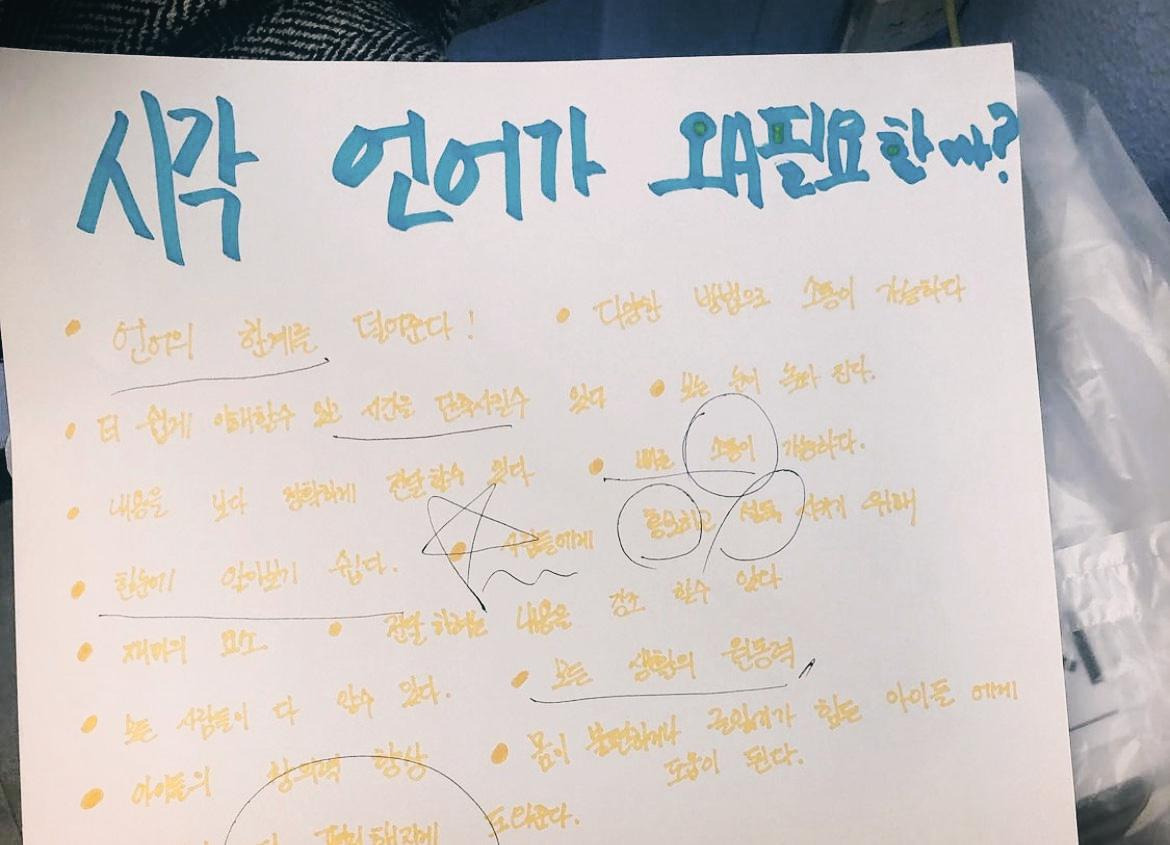 시각 언어가 왜 필요한가?
• 언어의 한계를 덜어준다!
• 다양한 방법으로 소통이 가능하다
• 더 쉽게 이해할수 있고 시간을 단축시킬수 있다
• 보는 눈이 높아 진다.
• 내용을 보다 정확하게 전달할수 있다
• 빠른 소통이 가능하다.
• 한눈에 알아보기 쉽다.
• 사람들에게 홍보하고 설득 시키기 위해
• 재미의 요소
• 전달하려는 내용을 강조 할수 있다
• 모든 사람들이 다 알수 있다.
• 모든 생활의 원동력
• 아이들의 창의력 향상
• 몸이 불편하거나 글읽기가 힘든 아이들 에게
도움이 된다.
도와준다.